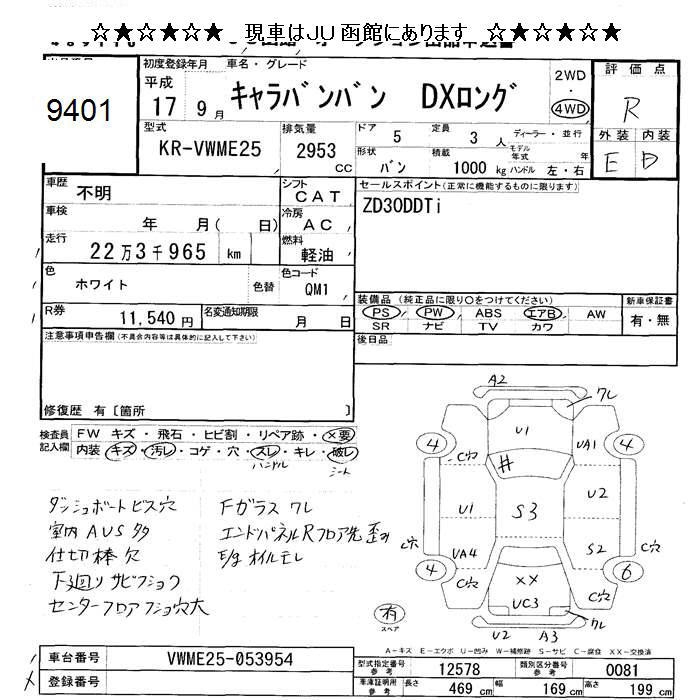 ☆★☆★☆★ 現車はJU函館にあります ☆★☆★☆★
9401
初度登録年月 車名・グレード
平成 17 9月 キャラバンバン DXロング
2WD・4WD
評価点
R
外装 内装
E D
型式 排気量 ドア 5 定員 3人 ディーラー・並行
KR-VWME25 2953cc 形状 バン 積載 1000kg モデル年式 年式 ハンドル 左・右
車歴 不明 シフト CAT
セールスポイント(正常に機能するものに限ります)
ZD30DDTi
車検 年 月( 日) 冷房 AC
走行 22万3千965km 燃料 軽油
色 ホワイト 色替 色コード QM1
装備品(純正品に限り○をつけてください) 新車保証書
PS PW ABS エアB AW 有・無
SR ナビ TV カワ
R券 11,540円 名変通知期限 月 日
後日品
注意事項申告欄(不具合内容等は具体的に記入して下さい)
修復歴 有〔箇所 〕
検査員記入欄 FW キズ・飛石・ヒビ割・リペア跡・×要
内装 キズ・汚レ・コゲ・穴・スレ・キレ・破レ
ハンドル シート
ダッシュボードビス穴
室内AUS多
仕切棒欠
下廻リサビフショク
センターフロアフショ穴大
Fガラスワレ
エンドパネルRフロア先歪み
E/gオイルモレ
A2 ワレ
U1 UA1
4 4
C穴
U1 S3 U2
UA4 S2
C穴 C穴
4 6
C穴 ×× C穴
UC3
ワレ
U2 A3
有
スペア
A-キズ E-エクボ U-凹み W-補修跡 S-サビ C-腐食 XX-交換済
車台番号 VWME25-053954
登録番号
型式指定番号 参考 12578 類別区分番号 参考 0081
車庫証明用 参考 長さ 469cm 幅 169cm 高さ 199cm